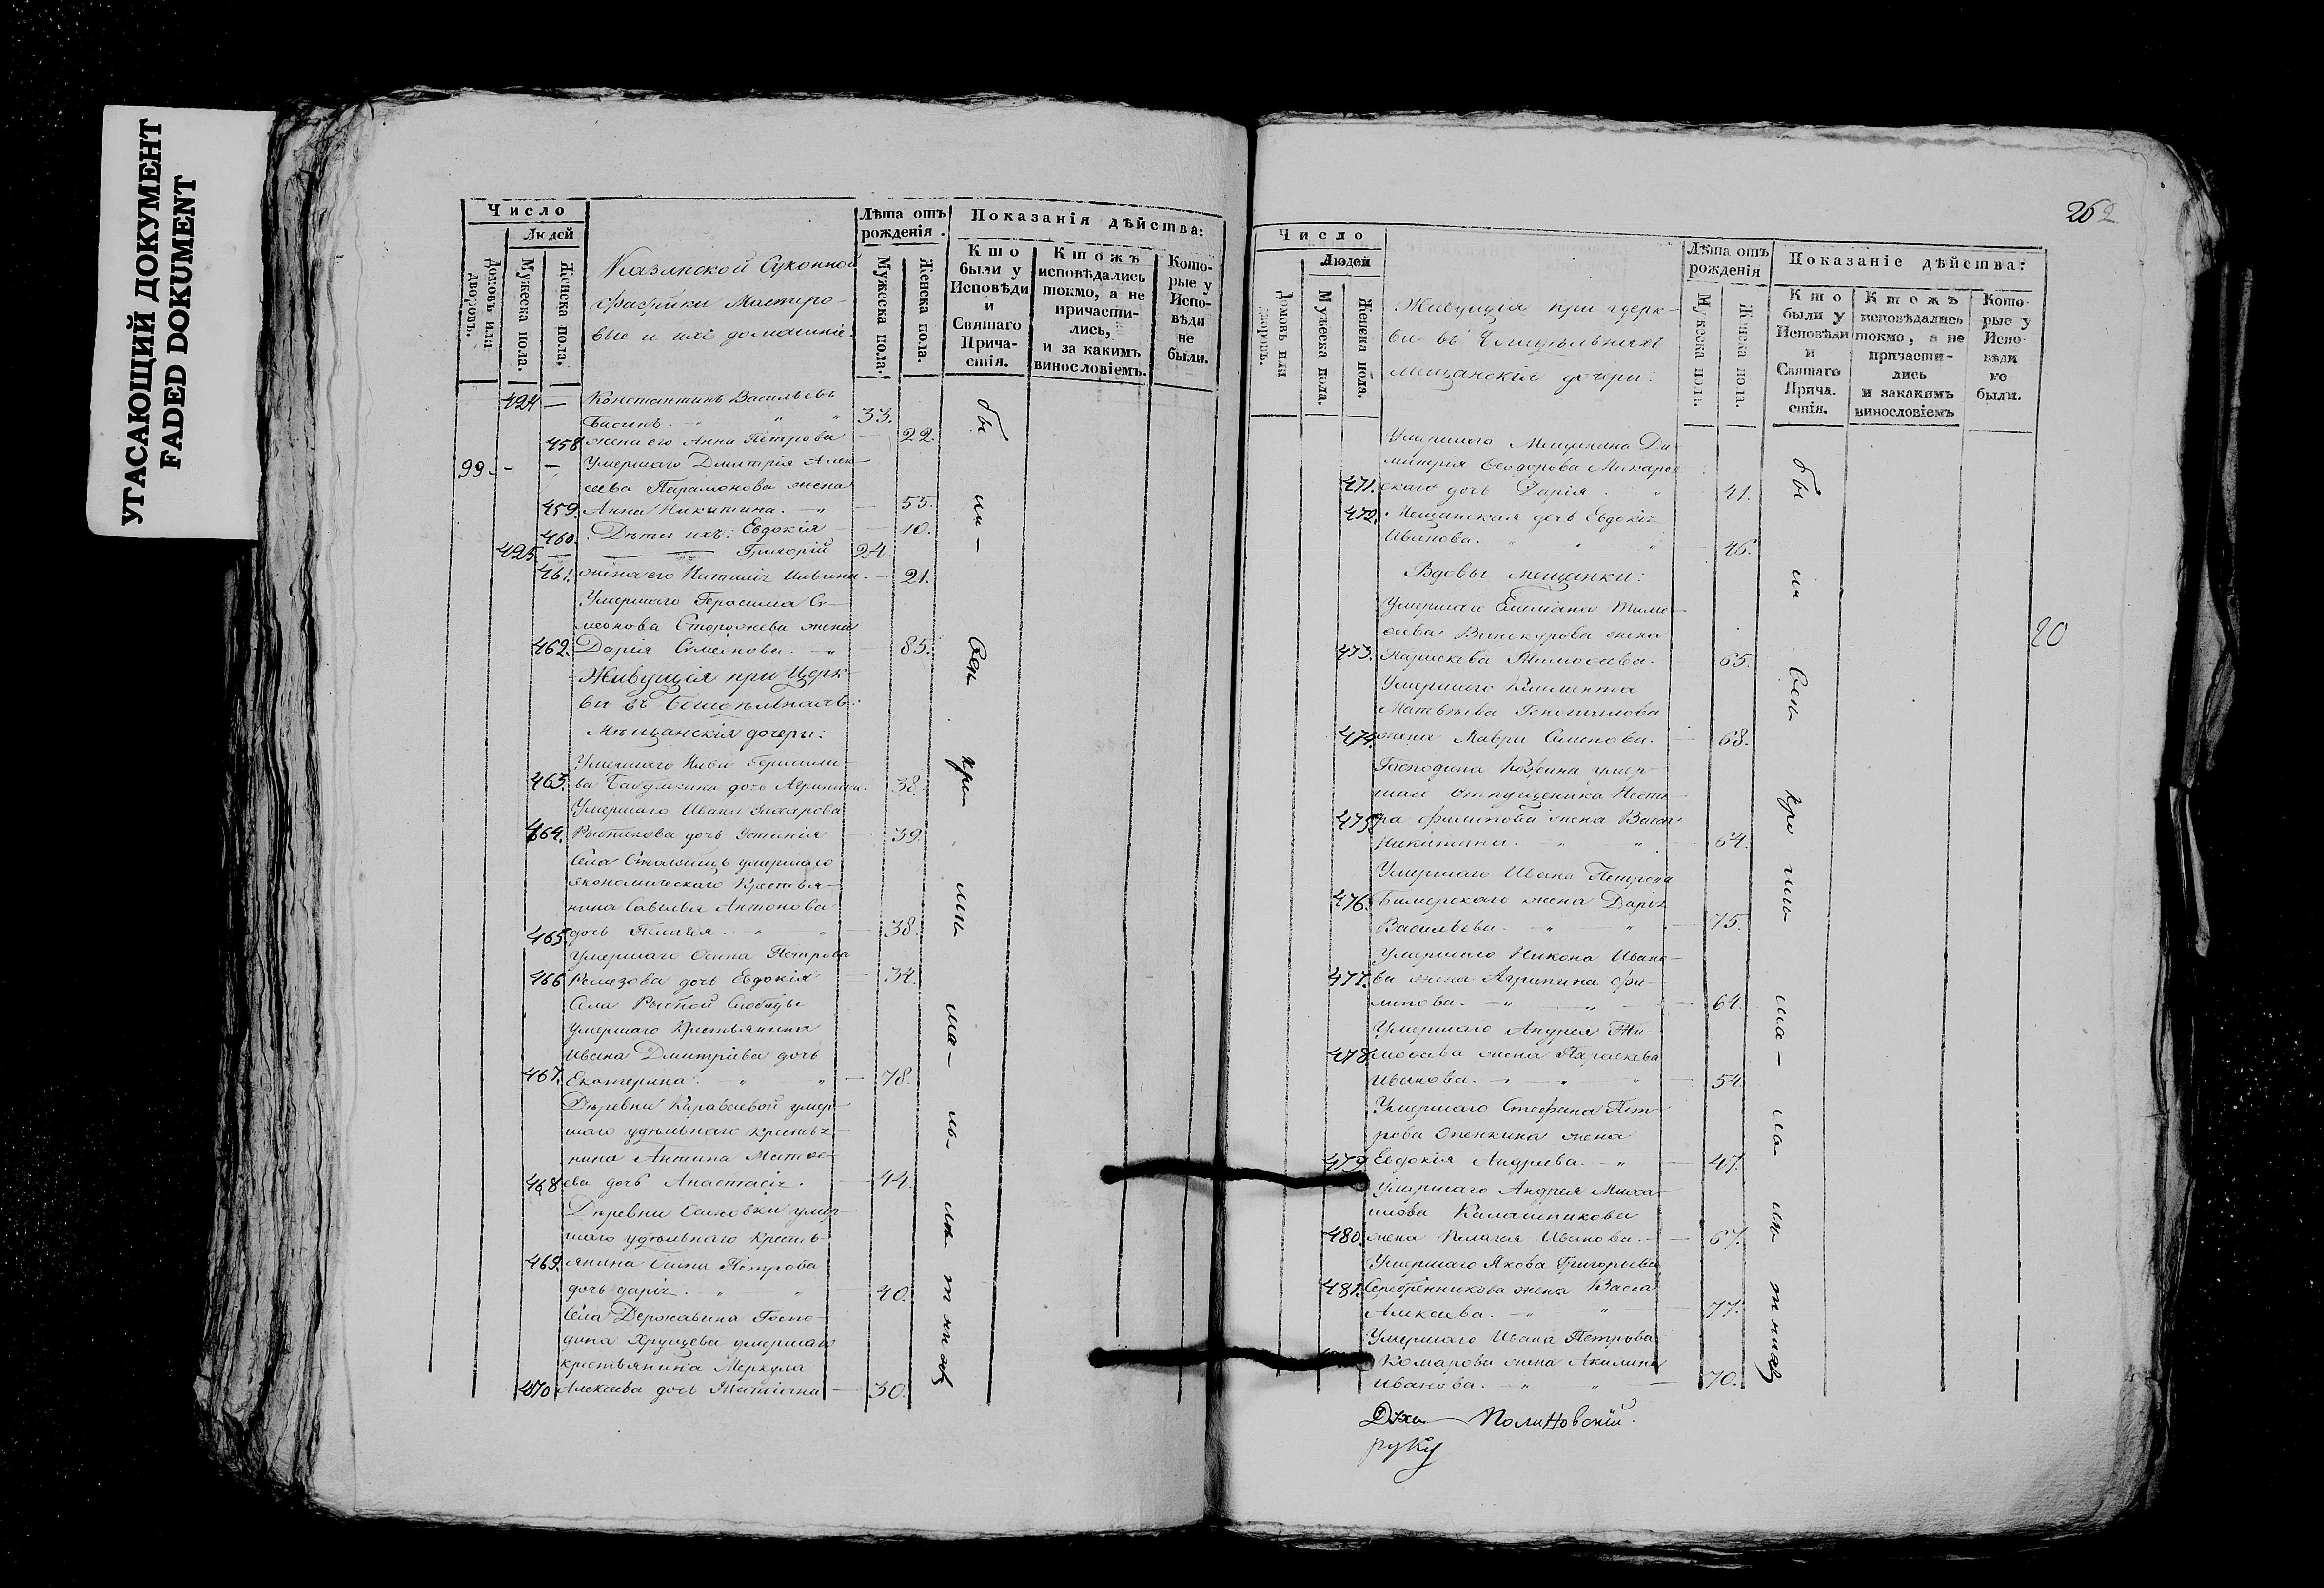 УГАСАЮЩИЙ ДОКУМЕНТ
FADED DOKUMENT
Число
Людей
Домовъ или дворовъ.
Мужеска пола.
Женска пола.
Казанской Суконной
фабрики Мастеро-
вые и ихъ домашніе.
Лѣта отъ рожденія.
Мужеска пола.
Женска пола.
Показанія дѣйства:
Кто были у Исповѣди и Святаго Прича-стія.
Ктожъ исповѣдались токмо, а не причасти-лись, и за какимъ винословіемъ.
Кото-рые у Испо-вѣди не были.
424 — Константинъ Васильевъ
33.
458 жена его Анна Петрова — 22.
99. — — Умершаго Дмитрія Алек-
сѣева Парамонова жена
459. Анна Никитина. — 55.
460. Дѣти ихъ: Евдокія — 10.
425 — Григорій 24.
461. жена его Наталія — 21.
Умершаго Герасима Си-
меонова Сторожева жена
462. Дарія Симеонова. — 85.
Живущія при Церк-
ви въ Богодѣльняхъ:
Мѣщанскія дочери:
463. дочь 38.
Умершаго Ивана Захарова
464. дочь — 39.
Села умершаго
экономическаго Крестья-
нина Савелья Антонова
465. дочь — 38.
Умершаго Осипа Петрова
466 Ремезова дочь Евдокія — 34.
Села Рыбной Слободы
умершаго Крестьянина
Ивана Дмитріева дочь
467. Екатерина. — 78.
Деревни Караваевой умер-
шаго удѣльнаго крестья-
нина Антипа Матве-
468 ева дочь Анастасія. — 44.
Деревни умер-
шаго удѣльнаго Кресть-
469. янина Петрова
дочь Дарія. 40.
Села Державина Госпо-
дина Хрущева умершаго
крестьянина Меркула
470 Алексѣева дочь Татіана — 30.
бы ли — Всѣ
262
Число
Людей
Домовъ или дворовъ.
Мужеска пола.
Женска пола.
Живущія при церк-
ви въ
мещанскія дочери:
Лѣта отъ рожденія
Мужеска пола.
Женска пола.
Показаніе дѣйства:
Кто были у Исповѣди и Святаго Прича.стія.
Ктожъ исповѣдались токмо, а не причасти-лись и закакимъ винословіемъ
Кото-рые у Испо-вѣди не были.
Умершаго Мещанина Ди-
митрія Ѳеодорова
471. скаго дочь Дарія. 41.
472. Мещанская дочь Евдокія
Иванова. 46.
Вдовы мещанки:
Умершаго Емеліана Тимо-
ѳеева Винокурова жена
473. Параскева Тимоѳеева. 65.
Умершаго Климента
Матвѣева
474. жена Мавра Семенова. 68.
Господина умер-
шаго отпущеника Несто-
475. ра Филипова жена Васса
Никитина. 64.
Умершаго Ивана Петрова
476. жена Дарія
Васильева. 75.
Умершаго Никона Ивано-
477. ва жена Агрипина Фи-
липова. 64.
Умершаго Андрея Ти-
478. моѳеева жена Параскева
Иванова. 54.
Умершаго Стефана Пет-
рова Опенкина жена
479. Евдокія Андреева. 47.
Умершаго Андрея Миха-
илова Калашникова
480. жена Пелагея Иванова. — 67.
Умершаго Якова Григорьева
481. Серебренникова жена Васса
Алексѣева. 77.
Умершаго Ивана Петрова
Комарова жена Акилина
Иванова. 70.
бы ли Всѣ
20
руку